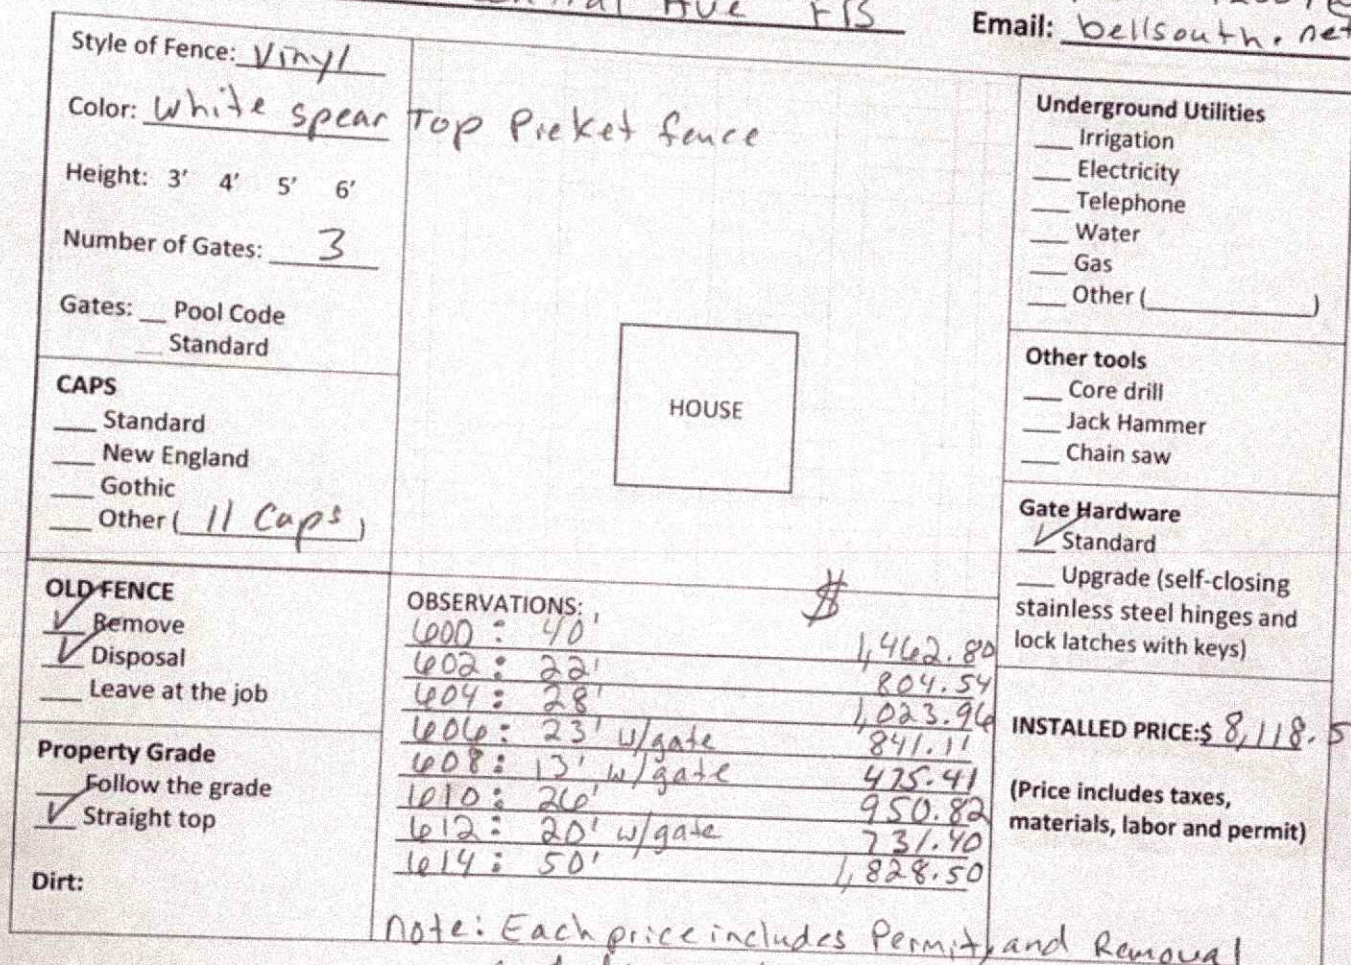 Ave FTS
Email: bellsouth.net
Style of Fence: Vinyl
Color: white spear Top Preket fence
Height: 3' 4' 5' 6'
Number of Gates: 3
Gates: __ Pool Code
__ Standard
CAPS
__ Standard
__ New England
__ Gothic
__ Other (11 Caps)
OLD FENCE
✓ Remove
✓ Disposal
__ Leave at the job
Property Grade
__ Follow the grade
✓ Straight top
Dirt:
HOUSE
OBSERVATIONS: $
600: 40' 1,462.80
602: 22' 804.54
604: 28' 1,023.96
606: 23' w/gate 841.11
608: 13' w/gate 475.41
610: 26' 950.82
612: 20' w/gate 731.40
614: 50' 1,828.50
note: Each price includes Permit, and Removal
Underground Utilities
__ Irrigation
__ Electricity
__ Telephone
__ Water
__ Gas
__ Other (__________)
Other tools
__ Core drill
__ Jack Hammer
__ Chain saw
Gate Hardware
✓ Standard
__ Upgrade (self-closing
stainless steel hinges and
lock latches with keys)
INSTALLED PRICE:$ 8,118.5
(Price includes taxes,
materials, labor and permit)